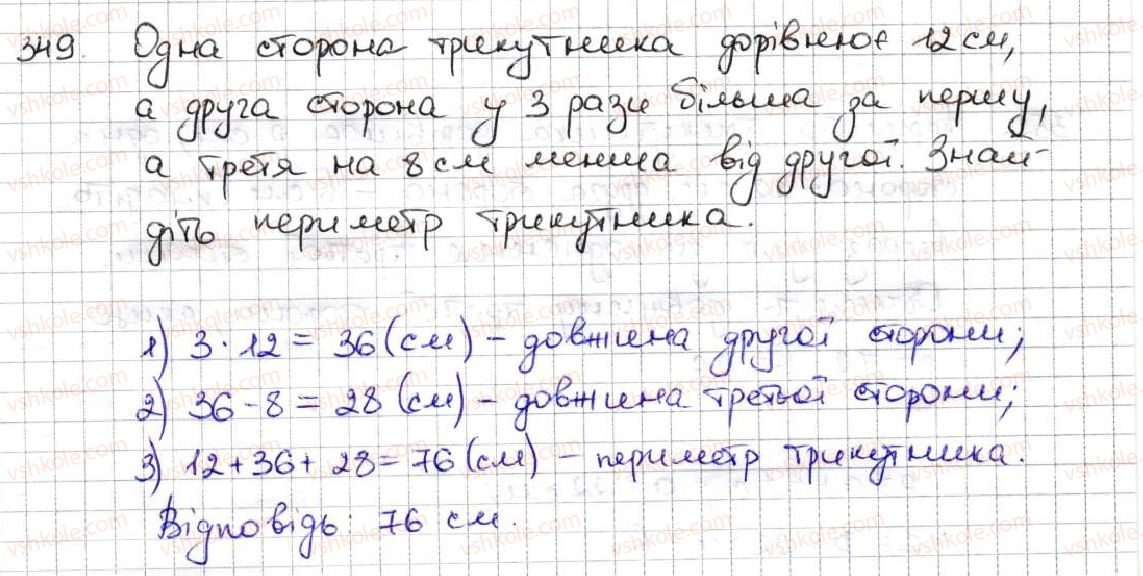 349. Одна сторона трикутника дорівнює 12 см,
а друга сторона у 3 рази більша за першу,
а третя на 8 см менша від другої. Знай-
діть периметр трикутника.
1) 3 · 12 = 36 (см) – довжина другої сторони;
2) 36 - 8 = 28 (см) – довжина третьої сторони;
3) 12 + 36 + 28 = 76 (см) – периметр трикутника.
Відповідь: 76 см.